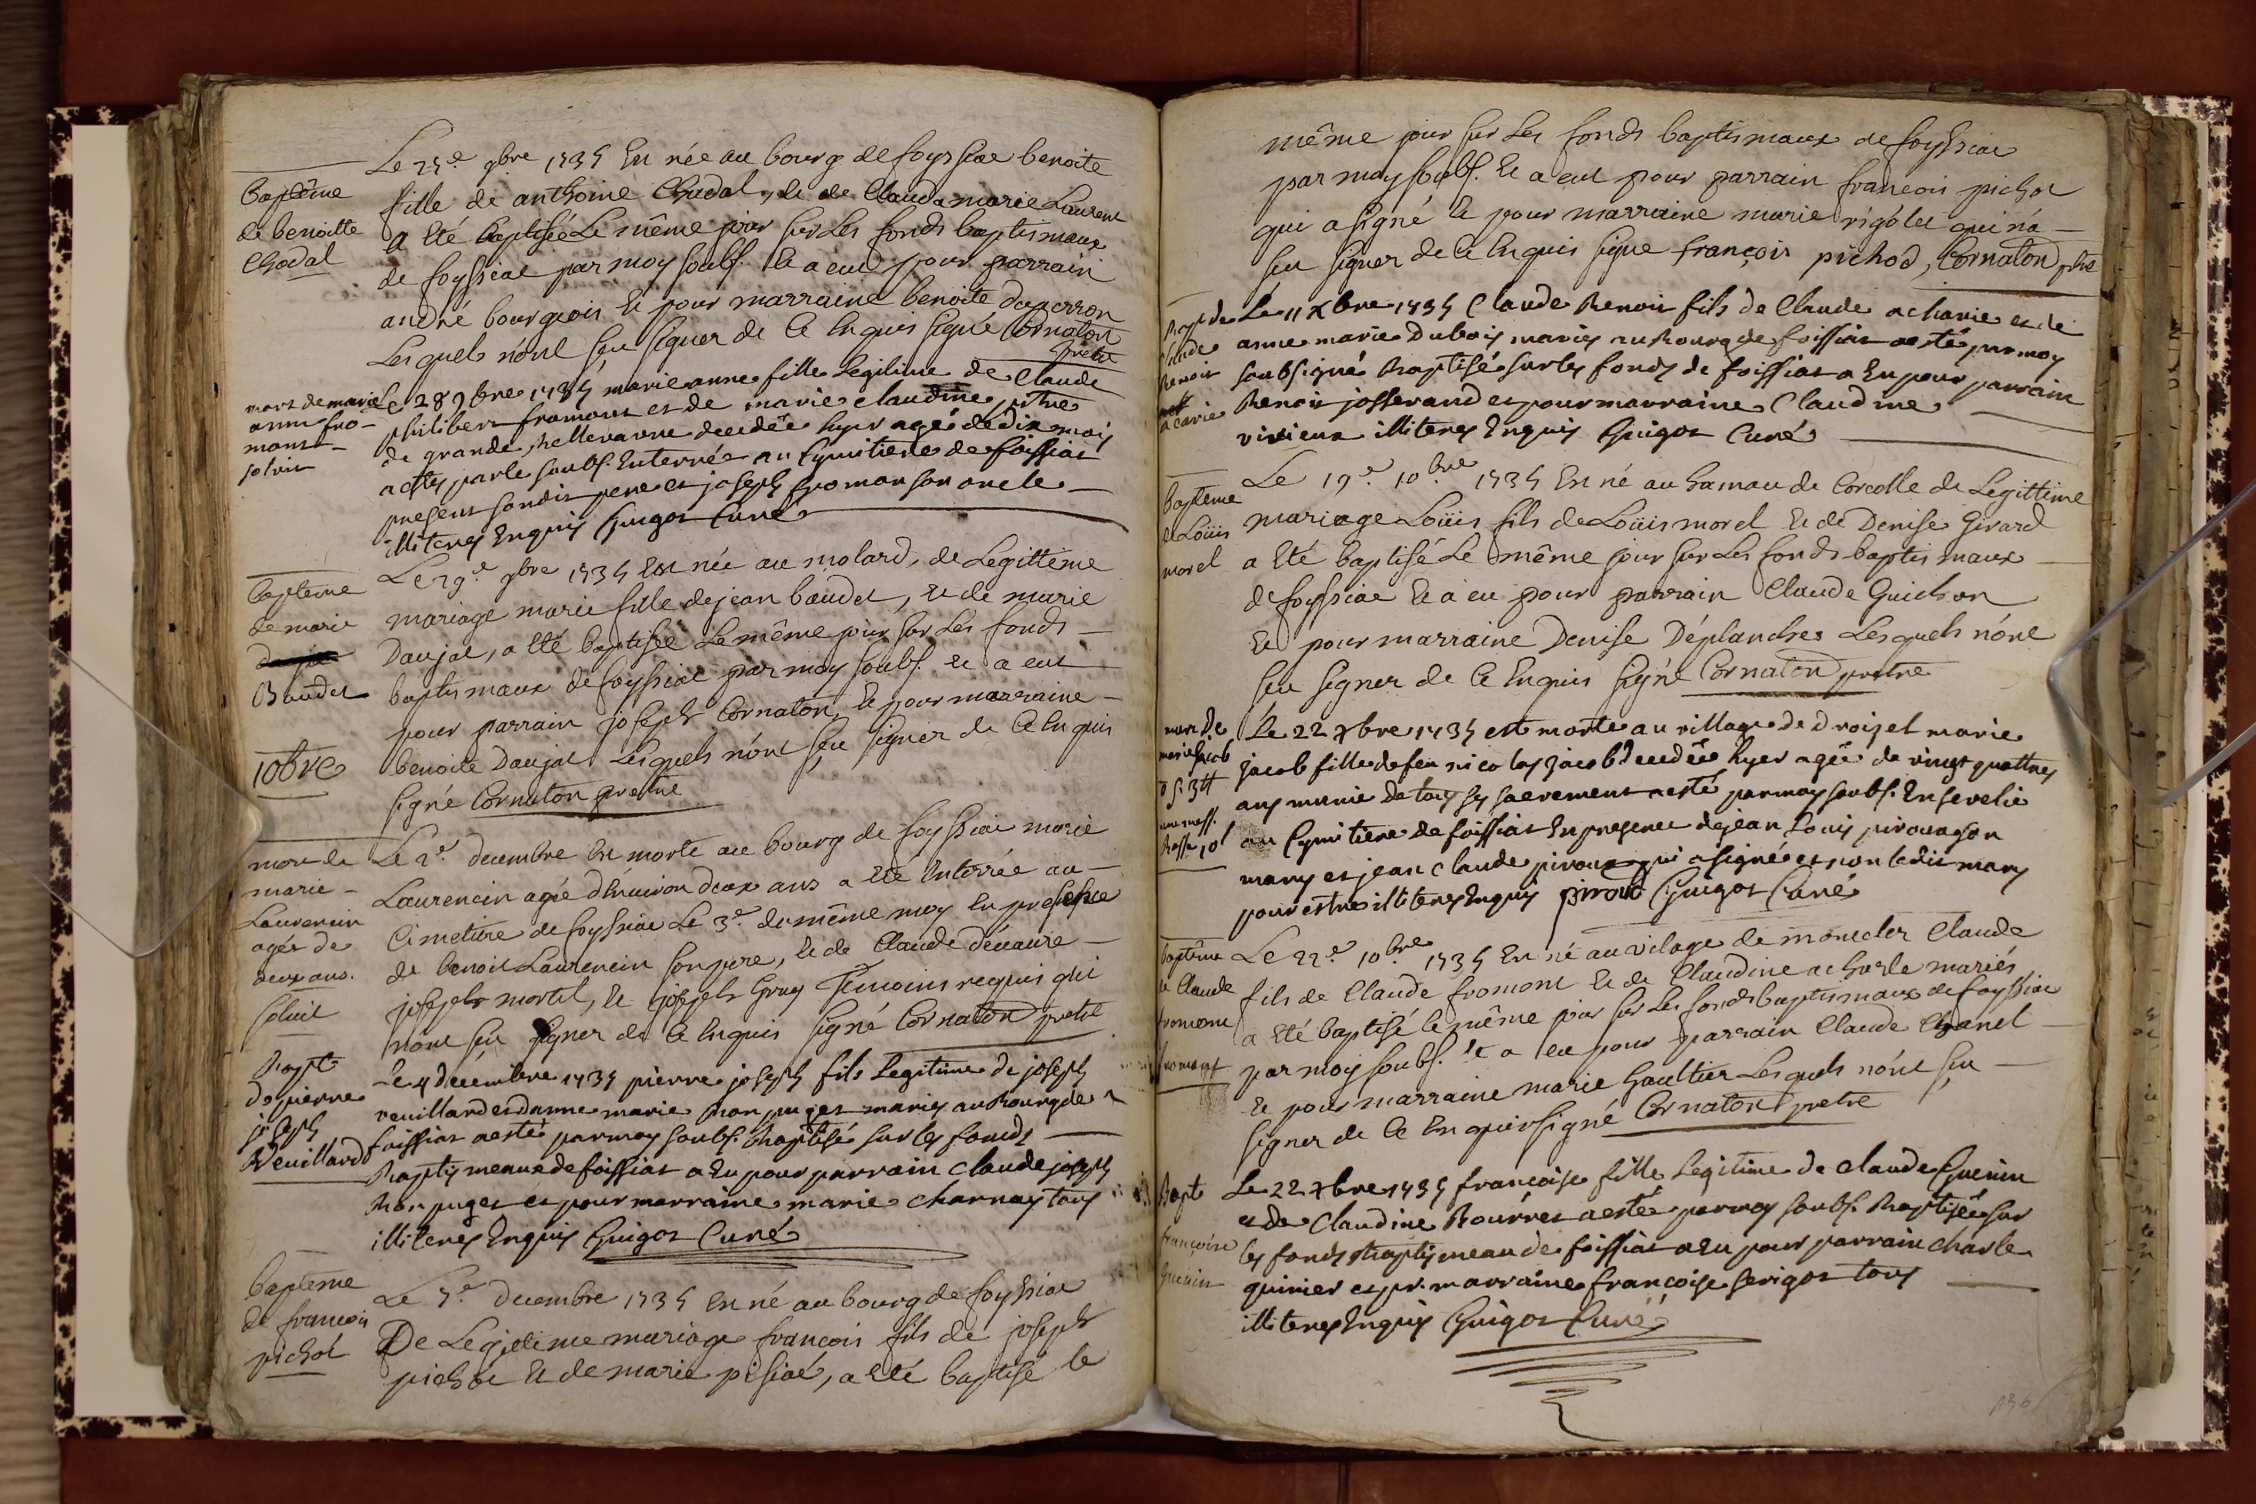 Baptême
de benoitte
Chodal
Le 25e 9bre 1735 Est née au bourg de foyssiat benoite
fille de anthoine Chodal, et de Clauda marie Laurent
a Eté baptisée Le même jour sur Les fonds baptismaux
de foyssiat par moy soubs. Et a eut pour parrain
andré bourgeois Et pour marraine benoite
Lesquels n'ont sçu signer de Ce Enquis signé Cornaton
pretre
mort de marie
anne fro-
mont
solvit
Le 28 9bre 1735 marie anne fille Legitime de Claude
philibert fromont et de marie claudine
de grande decedée hyer agée de dix mois
a esté par le soubs. Enterrée au Cymitiere de foissiat
present son dit pere et joseph fromon son oncle
illiterés Enquis Guigot Curé
baptême
de marie
Baudet
Le 29e 9bre 1735 Est née au molard, de Légittime
mariage marie fille de jean baudet, et de marie
Daujat, a Eté baptisée Le même jour sur Les fonds
baptismaux de foyssiat par moy soubs. et a eut
pour parrain joseph Cornaton, Et pour marraine
benoite Daujat Lesquels n'ont sçu signer de Ce Enquis
signé Cornaton pretre
10bre
mort de
marie
Laurencin
agée de
deux ans.
solvit
Le 2e decembre Est morte au bourg de foyssiat marie
Laurencin agée d'Environ deux ans a Eté Enterrée au
Cimetiere de foyssiat Le 3e du même moy En presence
de benoit Laurencin son pere, et de Claude
joseph mortel, et joseph Gray Temoins requis qui
n'ont sçu signer de Ce Enquis signé Cornaton pretre
Bapt
de pierre
joseph
Reuillard
Le 4 decembre 1735 pierre joseph fils Legitime de joseph
reuillard et d'anne marie Monpuget mariés au Bourg de
foissiat a esté par moy soubs. Baptisé sur les fonds
Baptismeaux de foissiat a Eu pour parrain Claude joseph
Monpuget et pour marraine marie charnay tous
illiterés Enquis Guigot Curé
baptême
de francois
pichot
Le 7e Decembre 1735 Est né au bourg de foyssiat
De Legitime mariage francois fils de joseph
pichot et de marie pissiat, a Eté baptisé le
même jour sur Les fonds baptismaux de foyssiat
par moy soubs. Et a eut pour parrain francois pichot
qui a signé Et pour marraine marie rigolet qui n'a
sçu signer de Ce Enquis signé françois pichod, Cornaton ptre
Bapt de
Claude
Benoit
acarie
Le 11 Xbre 1735 Claude Benoit fils de Claude acharie et de
anne marie Dubois mariés au Bourg de foissiat a esté par moy
soubsigné Baptisé sur les fonds de foissiat a Eu pour parrain
Benoit josserand et pour marraine Claudine
vivieux illiterés Enquis Guigot Curé
baptême
de Loüis
morel
Le 19e 10bre 1735 Est né au hamau de Corcelle de Legittime
mariage Loüis fils de Loüis morel Et de Denise Girard
a Eté baptisé Le même jour sur Les fonds baptismaux
de foyssiat Et a eu pour parrain Claude Guichon
Et pour marraine Denise Déplanches Lesquels n'ont
sçu signer de Ce Enquis signé Cornaton pretre
mort de
marie jacob
Le 22 Xbre 1735 est morte au village de Droiset marie
jacob fille de feu nicolas jacob decedée hyer agée de vingt quattres
ans munie de tous ses sacrement a esté par moy soubs. Ensevelie
au Cymitiere de foissiat En presence de jean Louis piroux son
mary et jean Claude piroux qui a signé et non le dit mary
pour estre illiterés Enquis piroud Guigot Curé
baptême
de Claude
fromont
fromont
Le 22e 10bre 1735 Est né au vilage de Claude
fils de Claude fromont Et de Claudine acharle mariés
a Eté baptisé le même jour sur Les fonds baptismaux de foyssiat
par moy soubs. Et a eu pour parrain Claude Chanel
Et pour marraine marie Gaultier Lesquels n'ont sçu
signer de Ce Enquis signé Cornaton pretre
Bapt
françoise
Guerin
Le 22 Xbre 1735 françoise fille Legitime de Claude Guerin
et de Claudine Bourret a esté par moy soubs. Baptisée sur
les fonds Baptismeau de foissiat a Eu pour parrain charle
quinier et pr. marraine françoise serigot tous
illiterés Enquis Guigot Curé